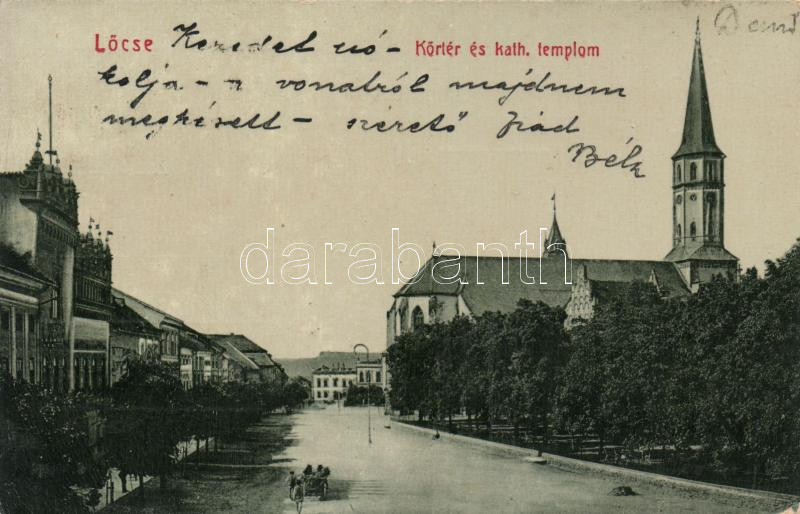 Lőcse
Körtér és kath. templom
Kezedet csó-
kolja - a vonatról majdnem
megkésett - szerető fiad
Béla
darabanth.com